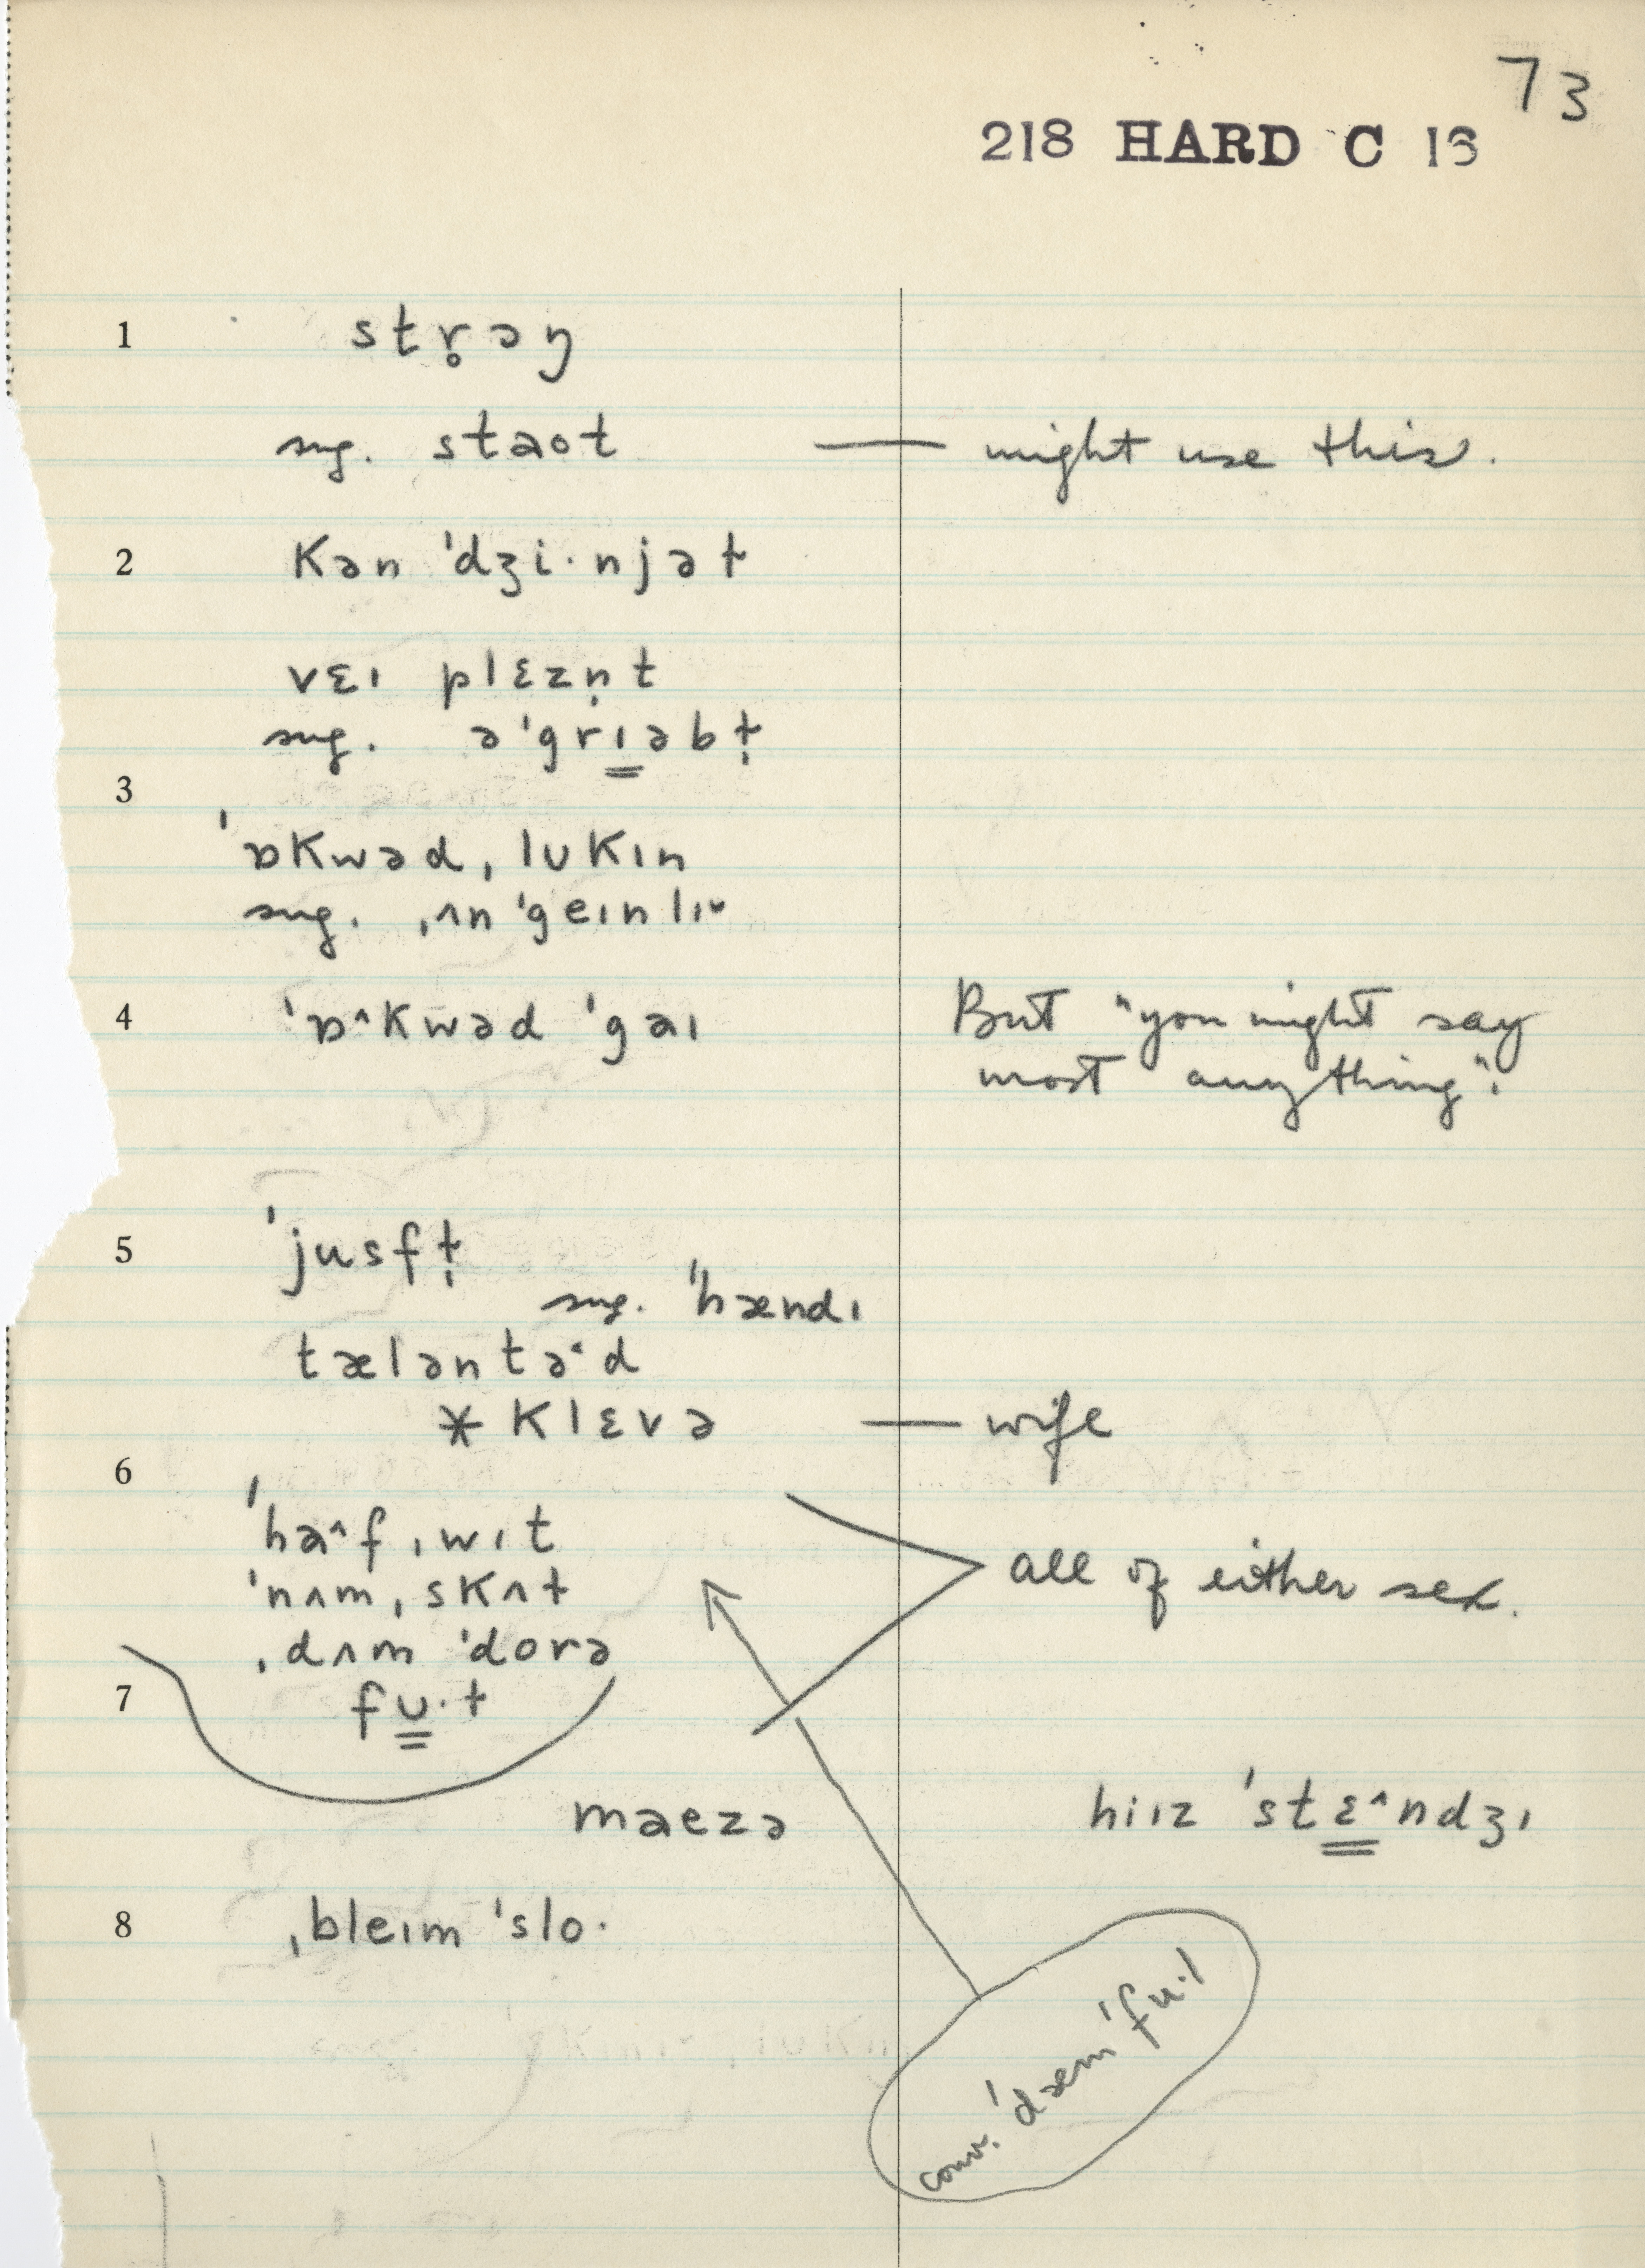 73
218 HARD C 16
1 str̥əŋ
sug. staot — might use this.
2 Kən 'dʒi·njəɫ
vɛɪ plɛzṇt
sug. ə'grɪ̳əbɫ̩
3
'ɒKwəd ˌlʊKɪn
sug. ˌʌn'geɪnlɪ˅
4 'ɒ^Kwəd 'gaɪ
But "you might say
most anything".
5 'jusfɫ̩
sug. 'hændɪ
tæləntə˂d
* Klɛvə — wife
6
'ha^f ˌwɪt
'nʌmˌsKʌɫ
all of either sex.
ˌdʌm 'dorə
7 fu̳·ɫ
maezə
hiɪz 'stɛ̳^ndʒɪ
8 ˌbleɪm 'slo·
conv. 'dæm 'fu·l